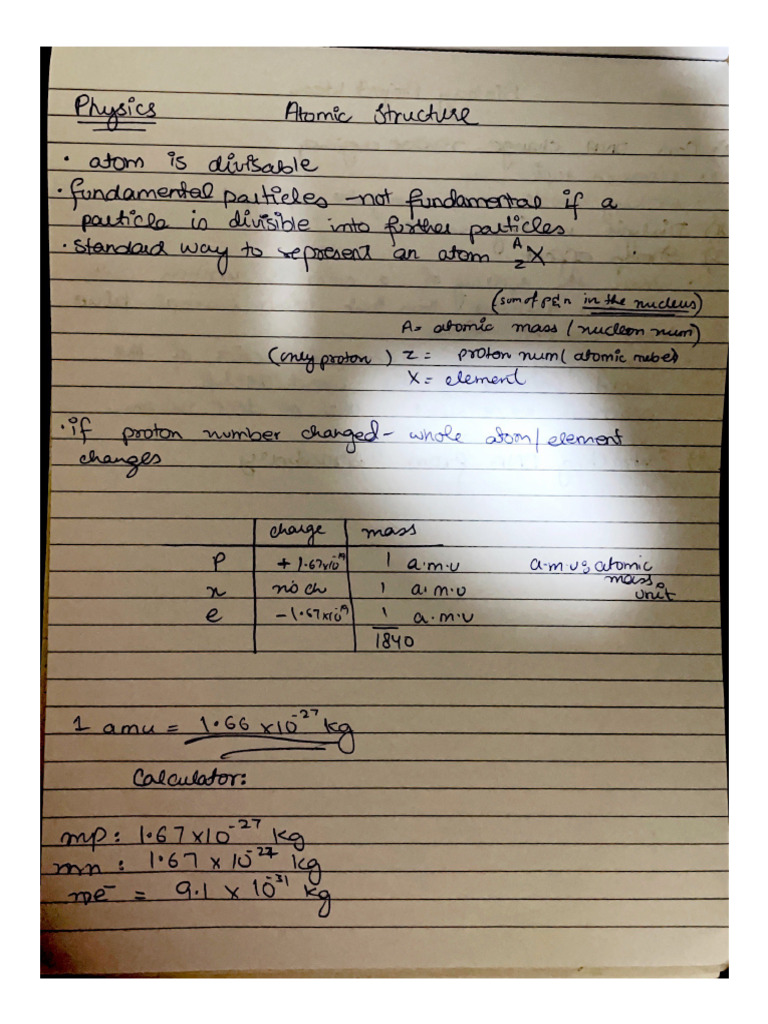 Physics Atomic Structure
• atom is divisable
• fundamental particles - not fundamental if a
particle is divisible into further particles
• standard way to represent an atom A Z X
(sum of p & n in the nucleus)
A = atomic mass (nucleon num)
(only proton) Z = proton num (atomic
X = element
• if proton number changed - whole atom/element
changes
charge mass
P +1.67x10⁻¹⁹ 1 a.m.u a.m.u: atomic
n no ch 1 a.m.u mass
e -1.67x10⁻¹⁹ 1/1840 a.m.u unit
1 amu = 1.66 x10⁻²⁷ kg
Calculator:
mp: 1.67x10⁻²⁷ kg
mn: 1.67 x 10⁻²⁷ kg
me⁻ = 9.1 x 10⁻³¹ kg